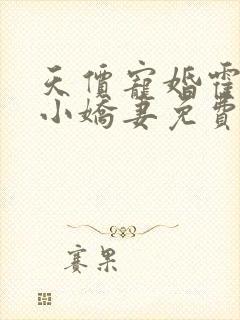 天價寵婚霍
小嬌妻免費
賽果